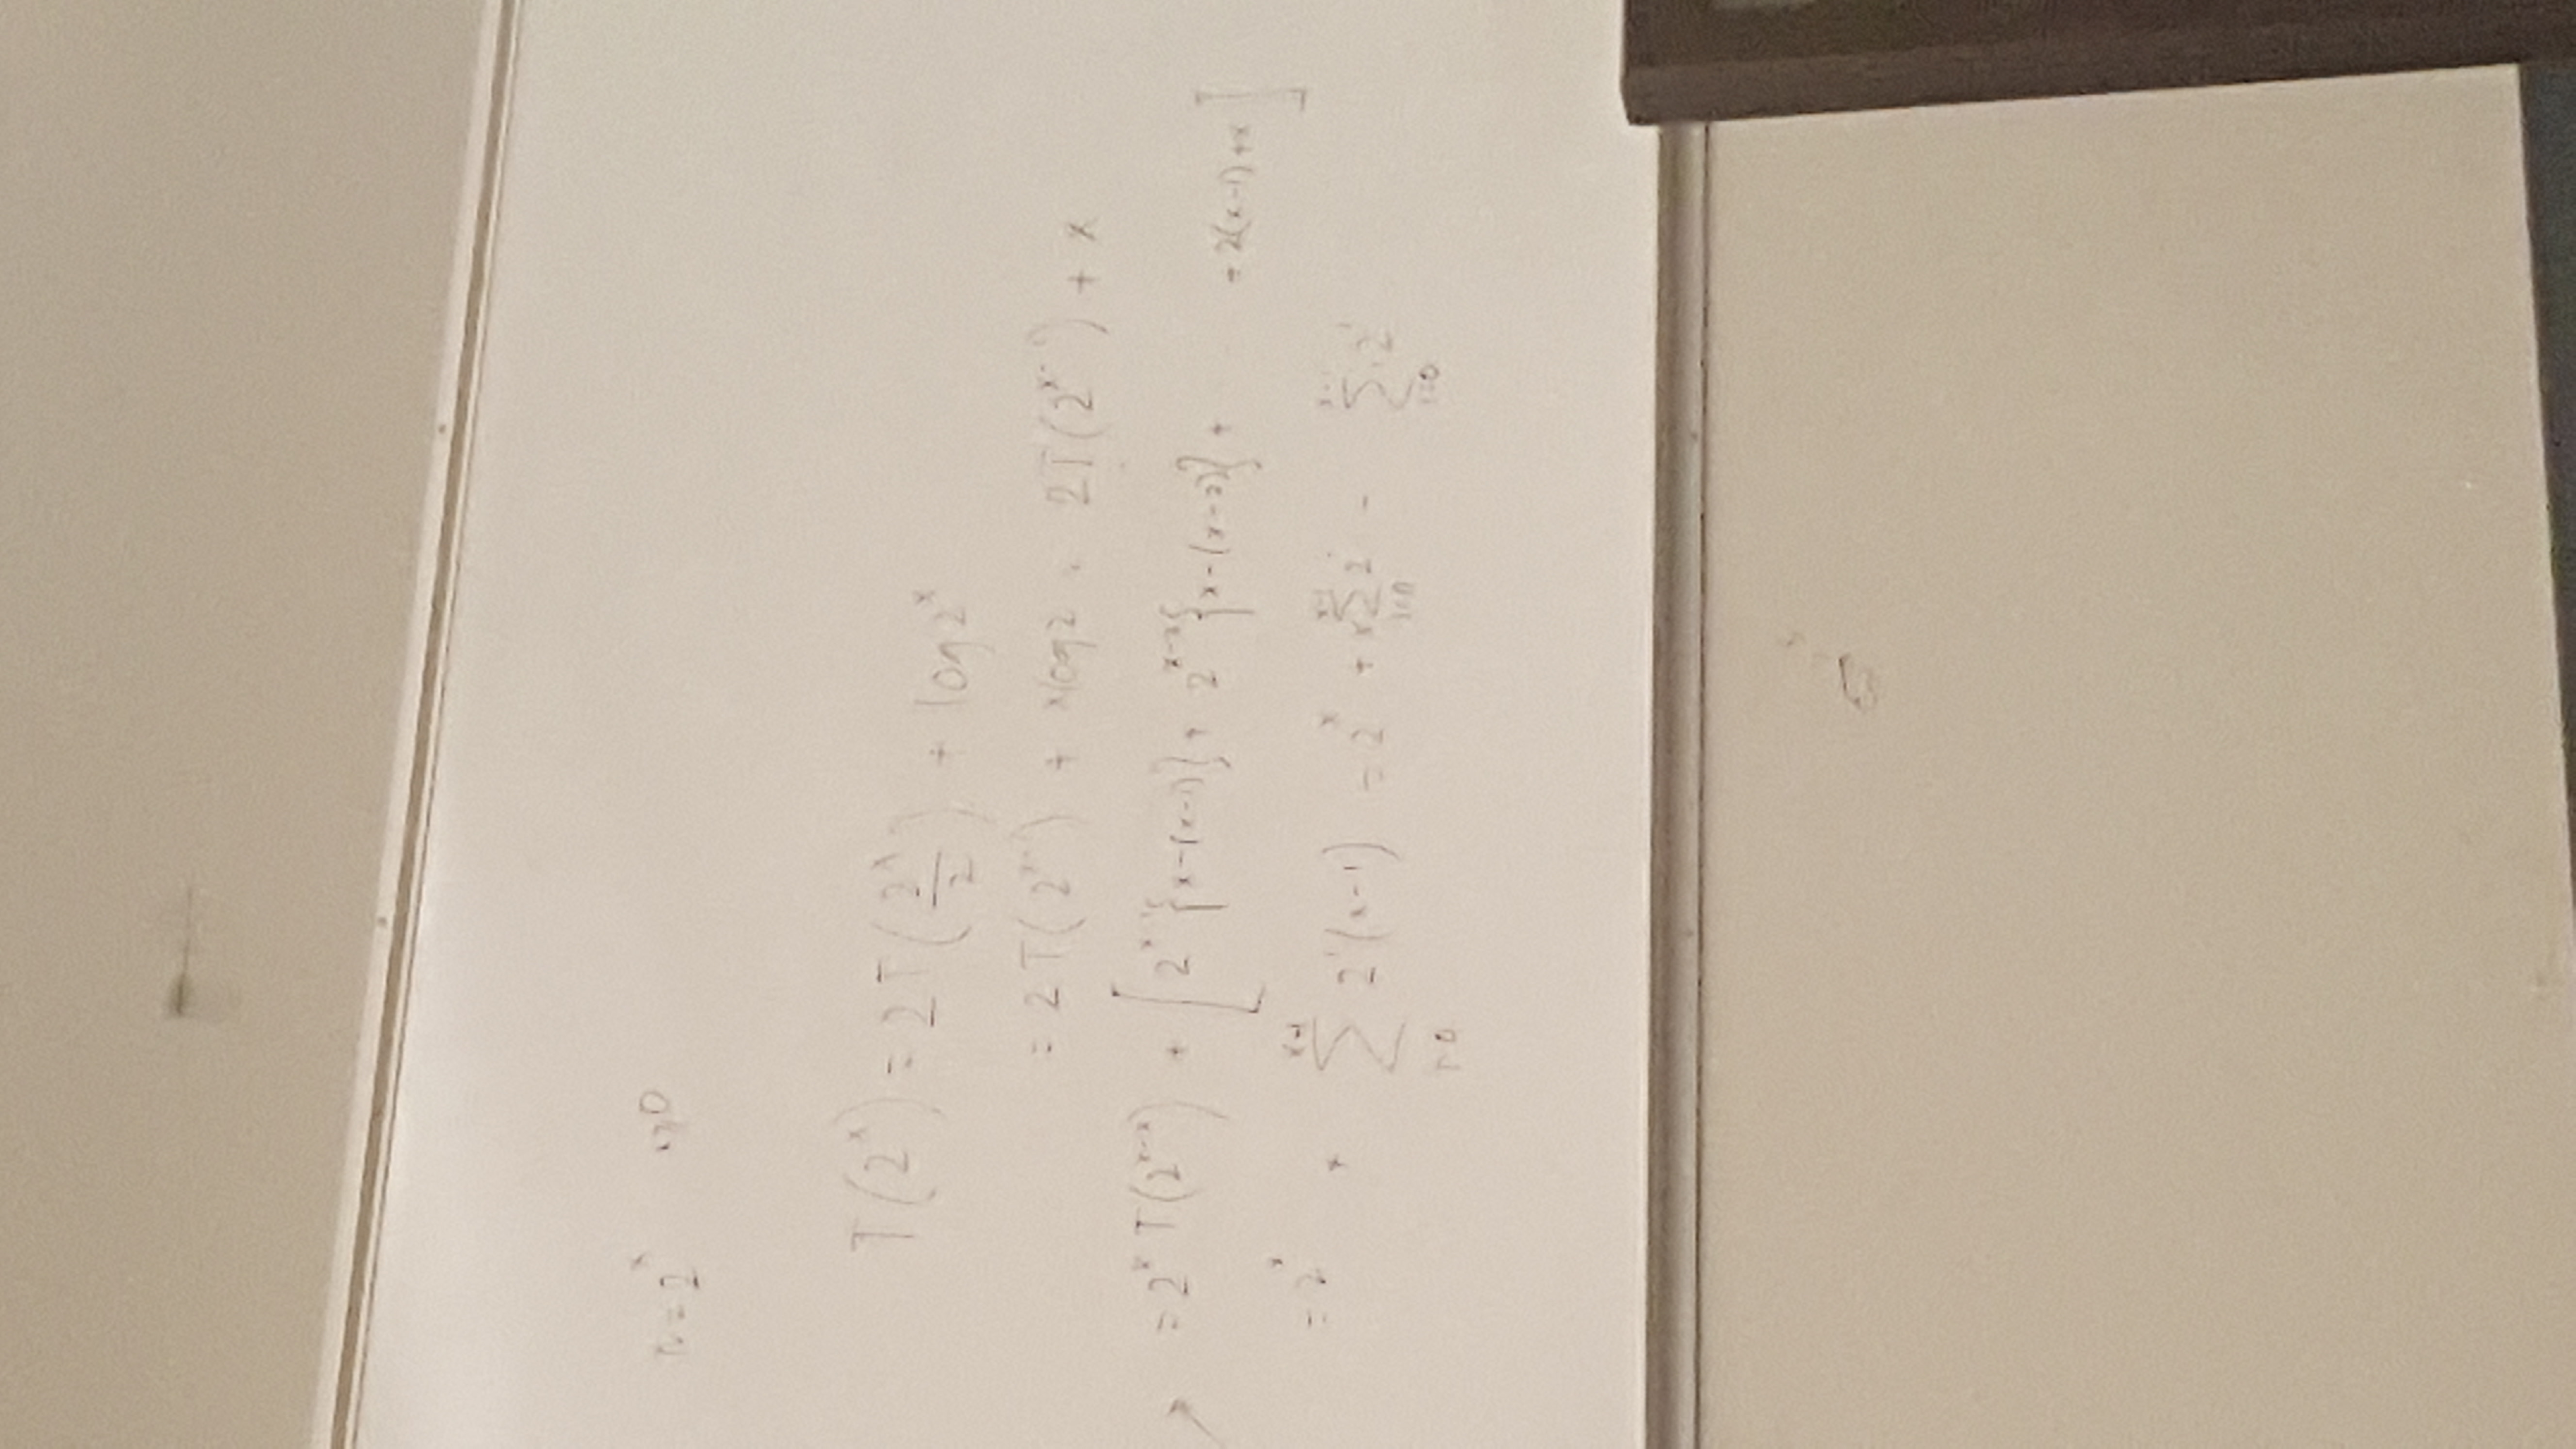 n = 2^x x≥0
T(2^x) = 2T(2^x/2) + log 2^x
= 2T(2^{x-1}) + x log 2 = 2T(2^{x-1}) + x
= 2^x T(2^{x-x}) + [2^{x-1}{x-(x-1)} + 2^{x-2}{x-(x-2)} + + 2(x-1)+x]
= 2^x + ∑_{i=0}^{x-1} 2^i(x-i) = 2^x + x∑_{i=0}^{x-1} 2^i - ∑_{i=0}^{x-1} i2^i